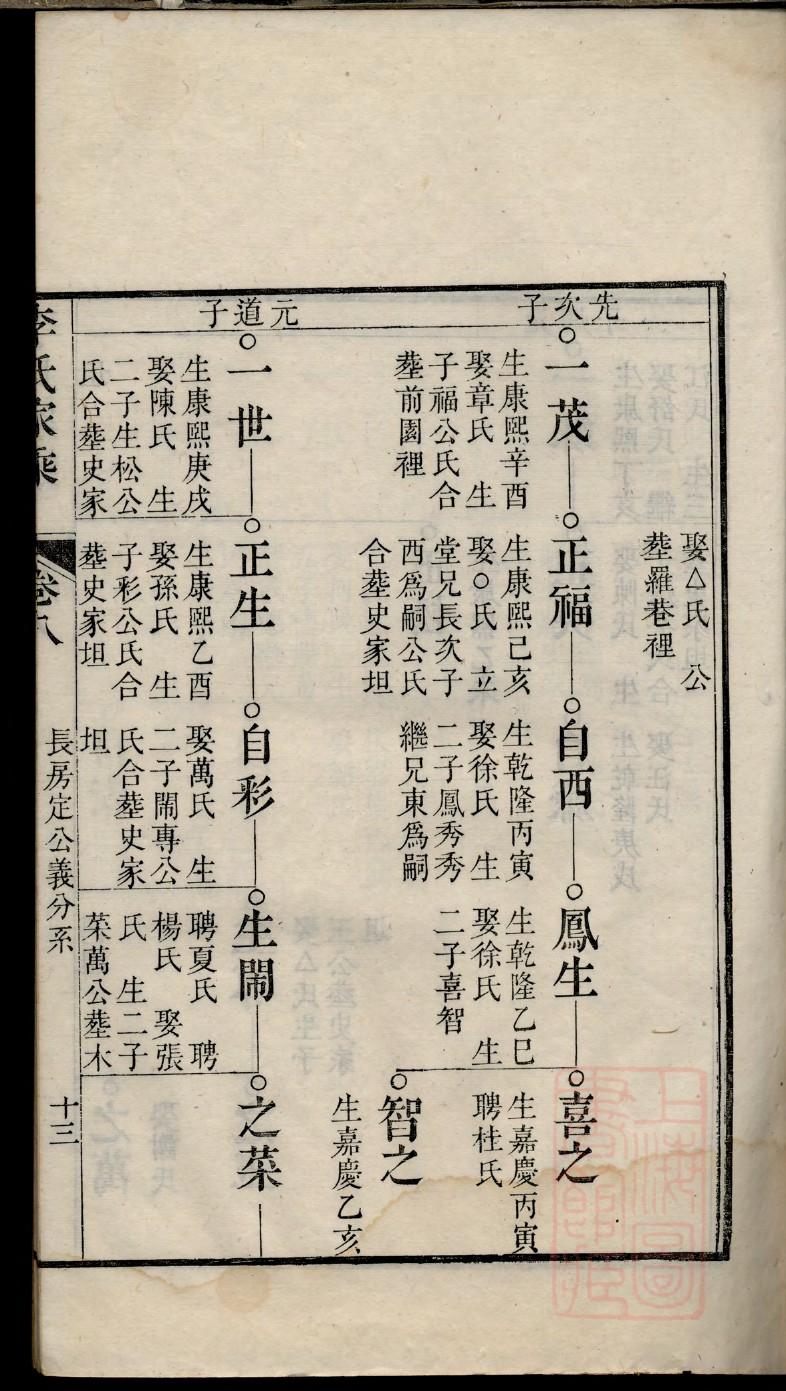 娶△氏　公
塟羅巷裡
先次子
一茂
生康熙辛酉
娶章氏　生
子福公氏合
塟前園裡
正福
生康熙己亥
娶○氏　立
堂兄長次子
西爲嗣公氏
合塟史家坦
自西
生乾隆丙寅
娶徐氏　生
二子鳳秀秀
繼兄東爲嗣
鳳生
生乾隆乙巳
娶徐氏　生
二子喜智
喜之
生嘉慶丙寅
聘桂氏
智之
生嘉慶乙亥
元道子
一世
生康熙庚戌
娶陳氏　生
二子生松公
氏合塟史家
正生
生康熙乙酉
娶孫氏　生
子彩公氏合
塟史家坦
自彩
娶萬氏　生
二子鬧專公
氏合塟史家
坦
生鬧
聘夏氏　聘
楊氏　娶張
氏　生二子
菜萬公塟木
之菜
李氏家乘
卷八
長房定公義分系
十三
上海圖